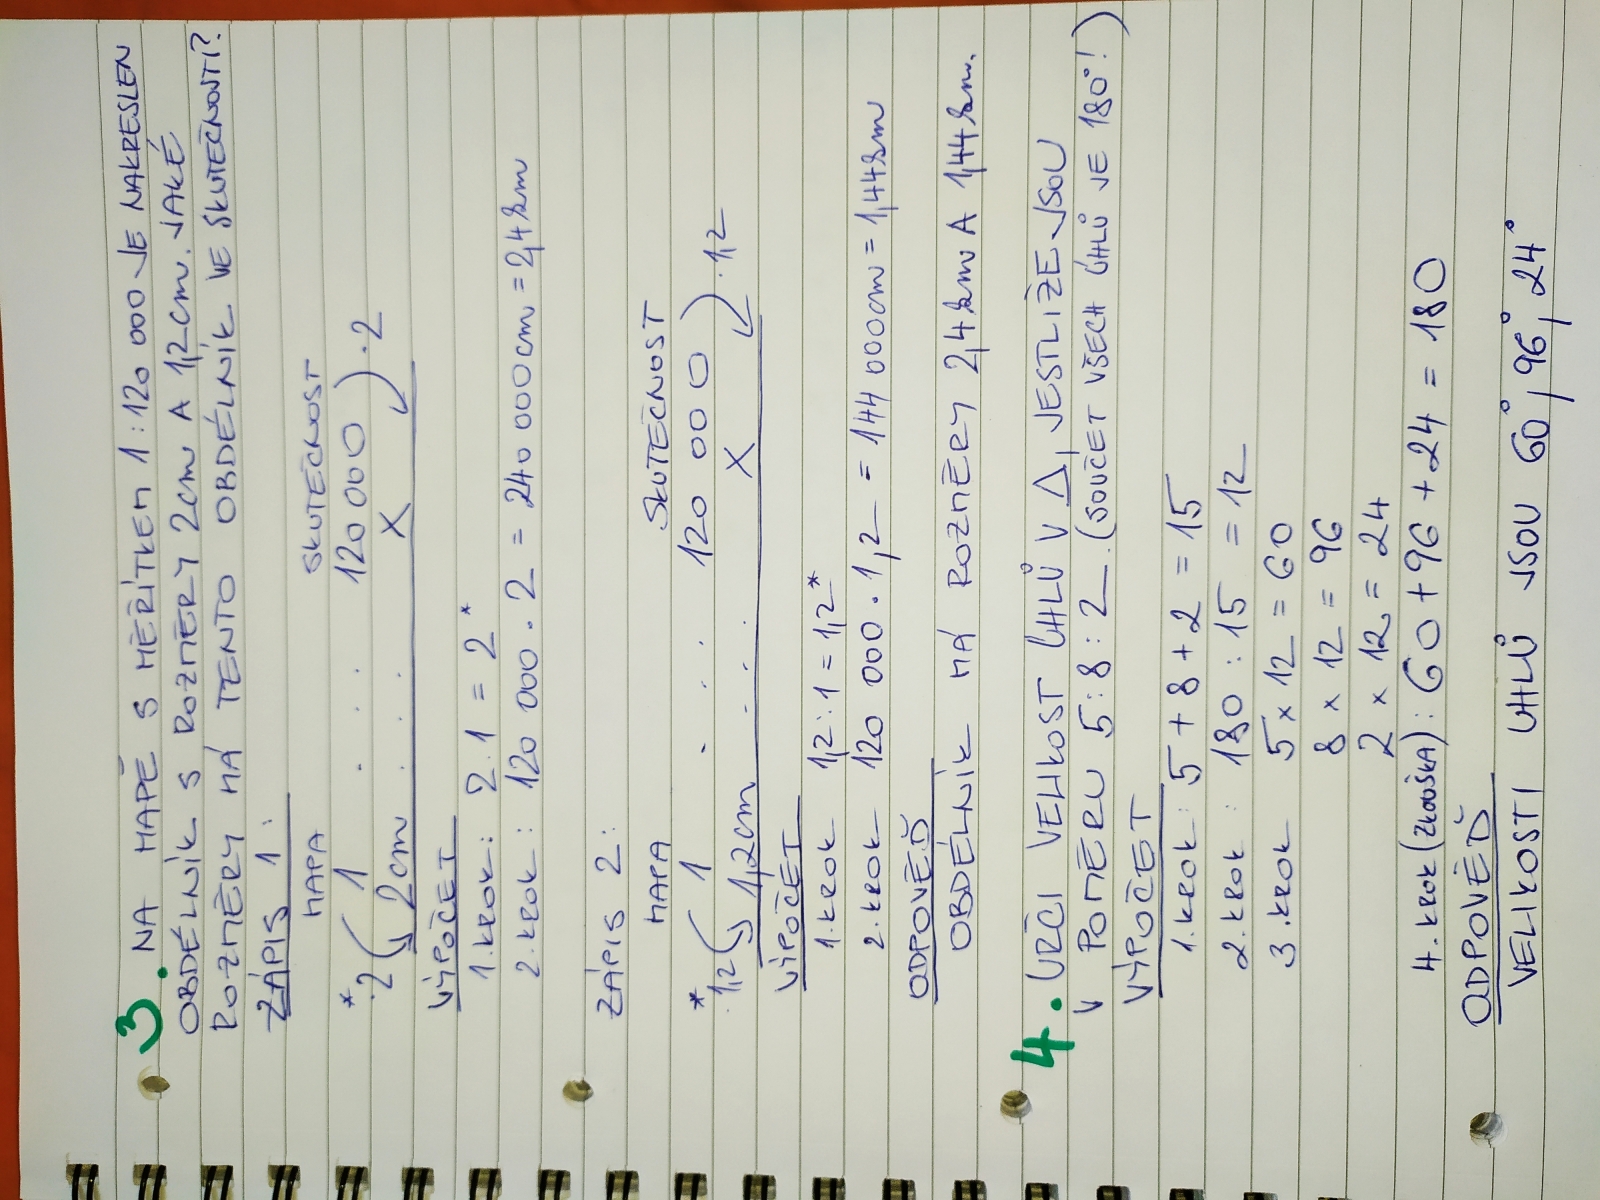 3. NA MAPĚ S MĚŘÍTKEM 1:120 000 JE NAKRESLEN
OBDÉLNÍK S ROZMĚRY 2cm A 1,2cm. JAKÉ
ROZMĚRY MÁ TENTO OBDÉLNÍK VE SKUTEČNOSTI?
ZÁPIS 1:
MAPA SKUTEČNOST
* .2 1 . . . 120 000 .2
2cm . . . X
VÝPOČET
1. KROK: 2:1 = 2*
2. KROK: 120 000 . 2 = 240 000cm = 2,4km
ZÁPIS 2:
MAPA SKUTEČNOST
* .1,2 1 . . . 120 000 .1,2
1,2cm . . . X
VÝPOČET
1. KROK 1,2:1 = 1,2*
2. KROK 120 000 . 1,2 = 144 000cm = 1,44km
ODPOVĚĎ
OBDÉLNÍK MÁ ROZMĚRY 2,4km A 1,44km.
4. URČI VELIKOST ÚHLŮ V △, JESTLIŽE JSOU
V POMĚRU 5:8:2. (SOUČET VŠECH ÚHLŮ JE 180°!)
VÝPOČET
1. KROK: 5 + 8 + 2 = 15
2. KROK: 180 : 15 = 12
3. KROK 5 x 12 = 60
8 x 12 = 96
2 x 12 = 24
4. KROK (ZKOUŠKA): 60 + 96 + 24 = 180
ODPOVĚĎ
VELIKOSTI ÚHLŮ JSOU 60°, 96°, 24°